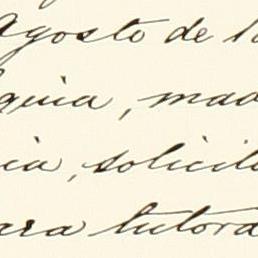 Agosto de l
quia, mad
ia, solicit
ara tutora